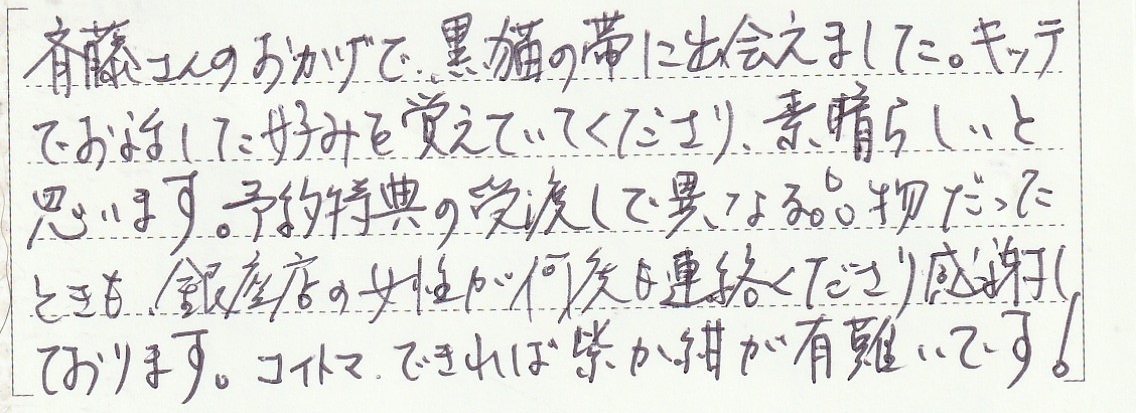 斉藤さんのおかげで、黒猫の帯に出会えました。キッテ
でお話した好みを覚えていてくださり、素晴らしいと
思います。予約特典の受渡しで異なる品物だった
ときも、銀座店の女性が何度も連絡くださり感謝し
ております。コイトマ、できれば紫か紺が有難いです!